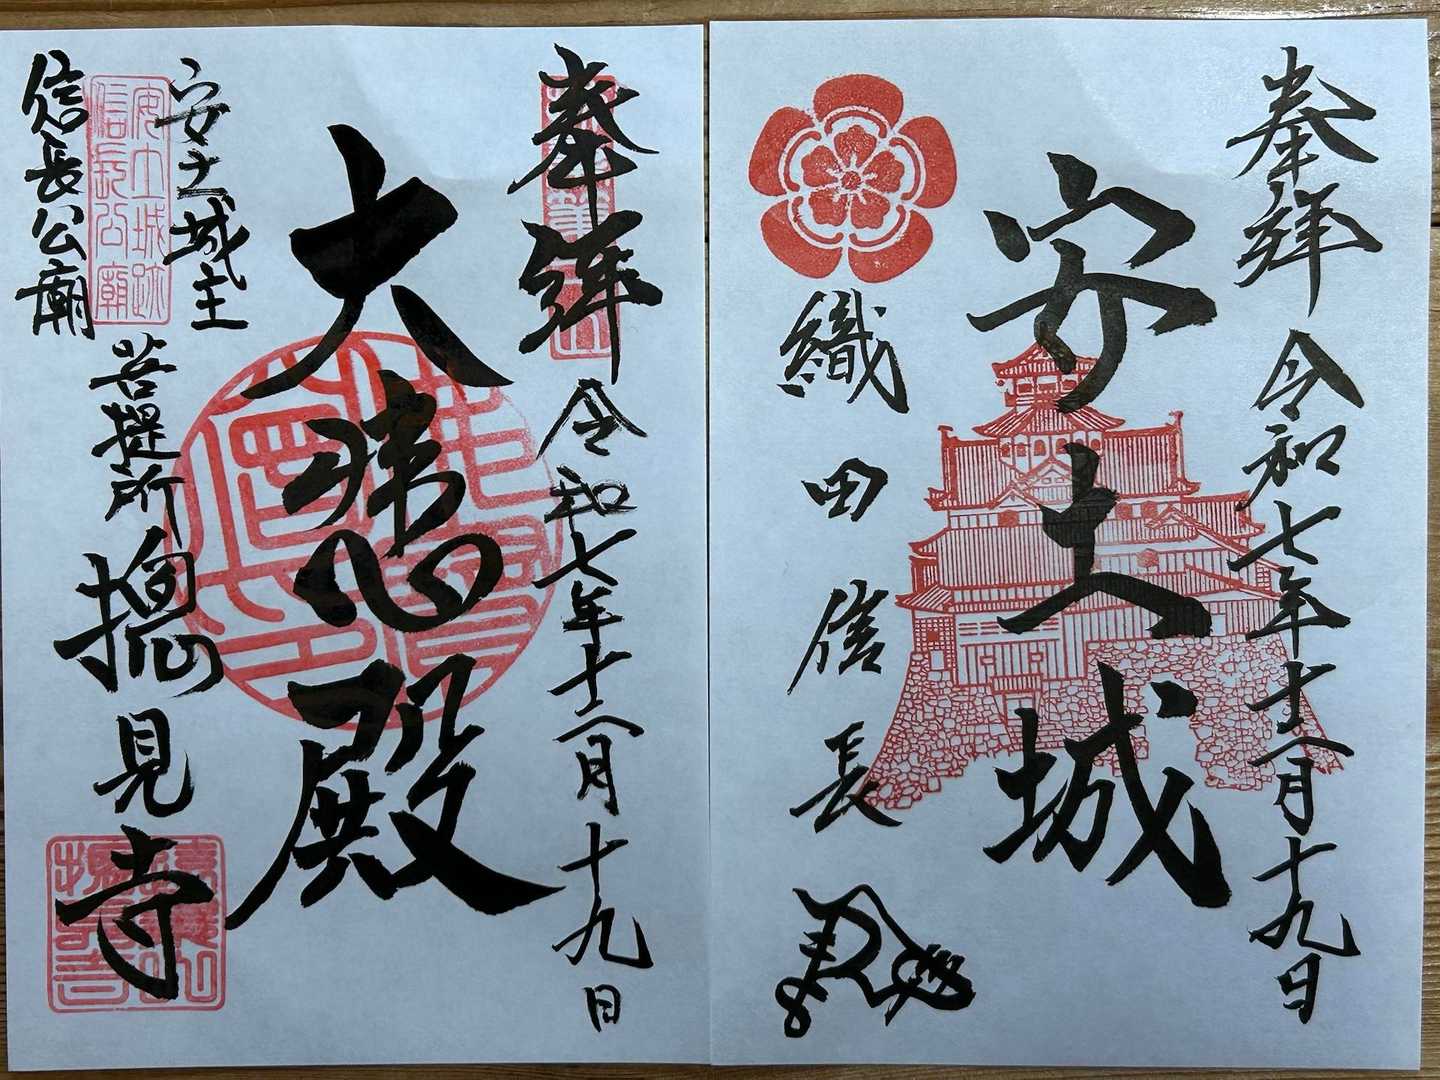 奉拝 令和七年十二月十九日
安土城
織田信長
奉拝 令和七年十二月十九日
大悲殿
安土城主
信長公廟
安土城跡
信長公廟
菩提所 摠見寺